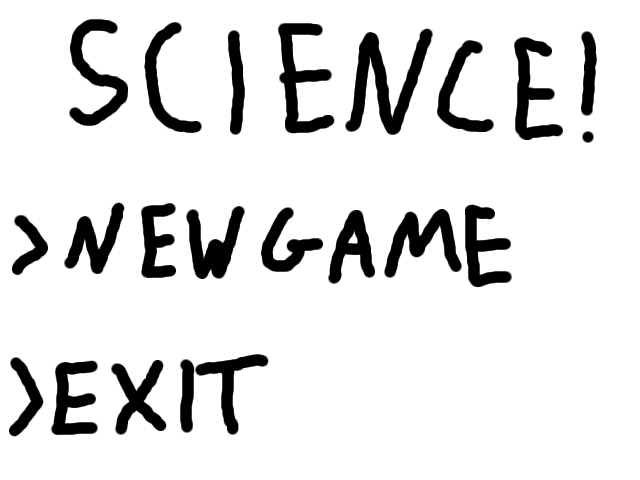 SCIENCE!
>NEW GAME
>EXIT